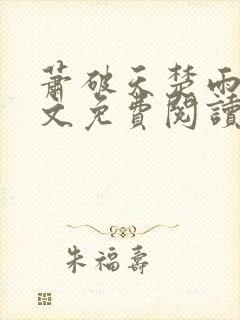 蕭破天楚雨
文免費閱讀
朱福壽